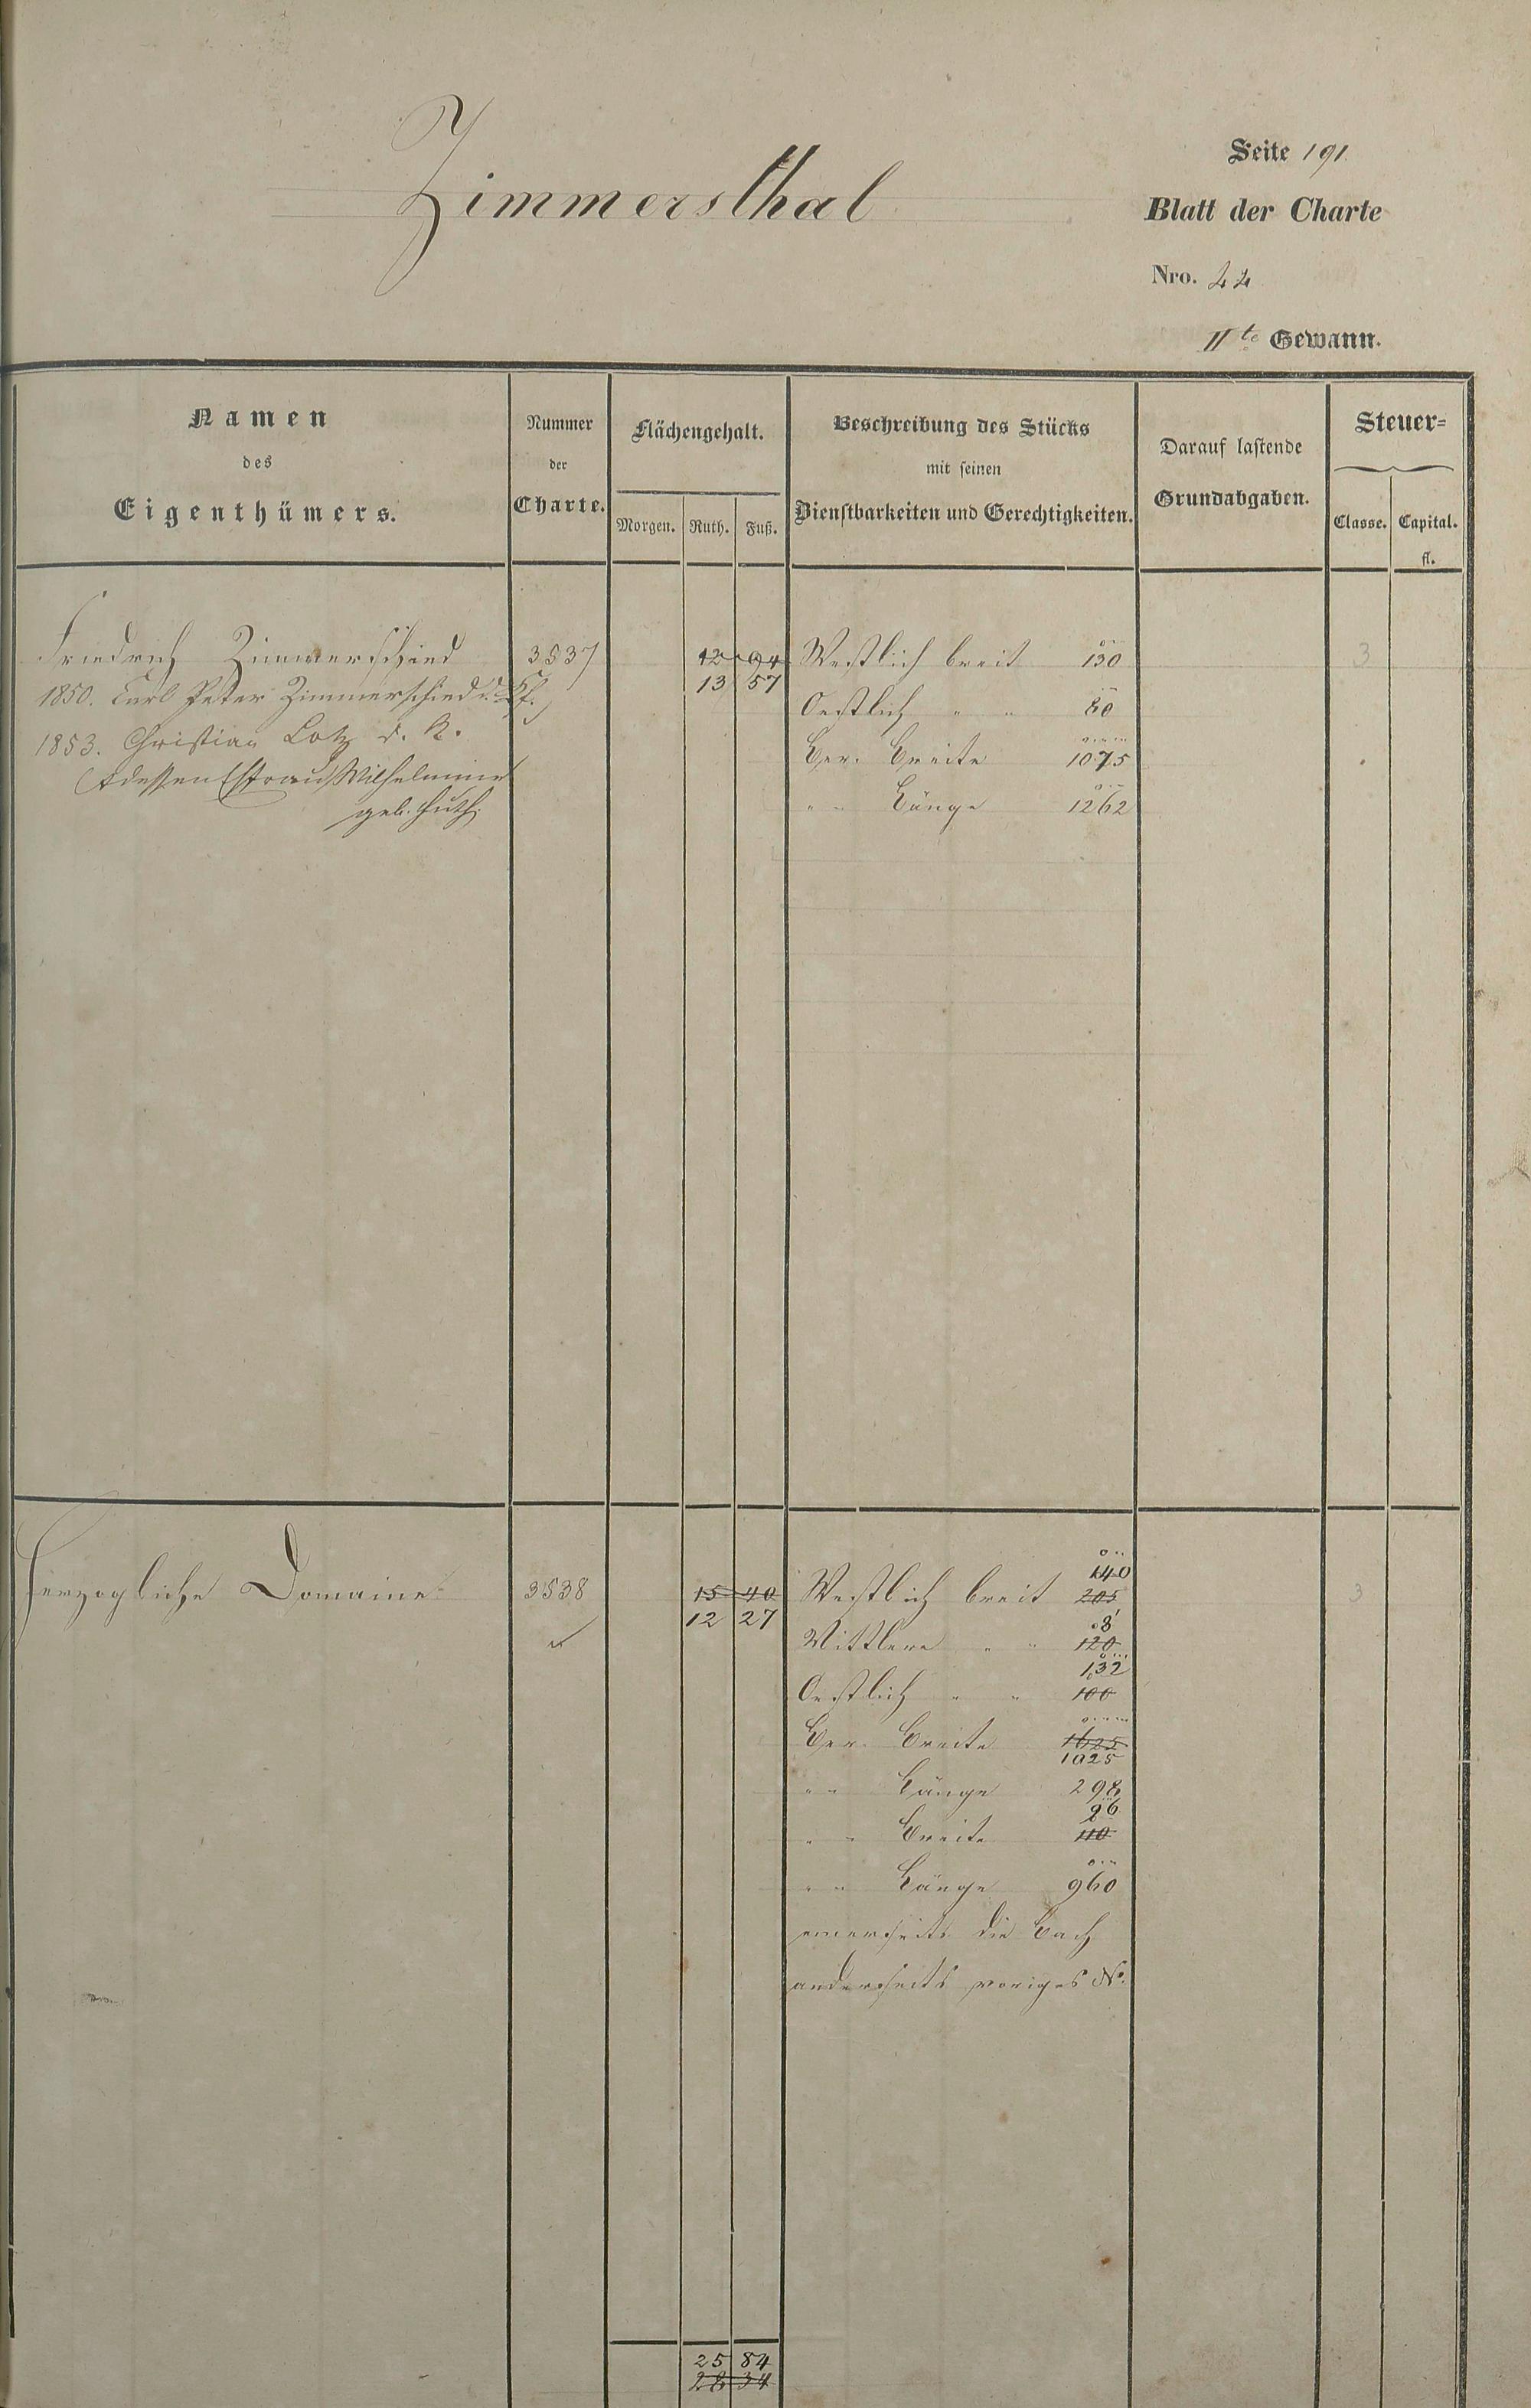 Zimmersthal
Seite 191
Blatt der Charte
Nro. 44
IIte Gewann.
Namen
des
Eigenthümers.
Nummer
der
Charte.
Flächengehalt.
Morgen. Ruth. Fuß.
Beschreibung des Stücks
mit seinen
Dienstbarkeiten und Gerechtigkeiten.
Darauf lastende
Grundabgaben.
Steuer=
Classe. Capital.
fl.
Friedrich Zimmerschied 3537 12 94 Westlich breit 130 3
1850. Carl Peter Zimmerschied d. Kf. 13 57
Oestlich " " 80
1853. Christian Lotz d. K.
Ber. Breite 1075
&dessen Ehfrau Wilhelmine
" " Länge 1262
geb. Huth.
140
Herzogliche Domaine 3538 15 40 Westlich breit 205 3
12 27
Mittlere " " 120
132
Oestlich " " 100
Ber. Breite 1625
1025
" " Länge 298
96
" " Breite 110
" " Länge 960
einerseits die Bach
anderseits voriges No.
25 84
28 34